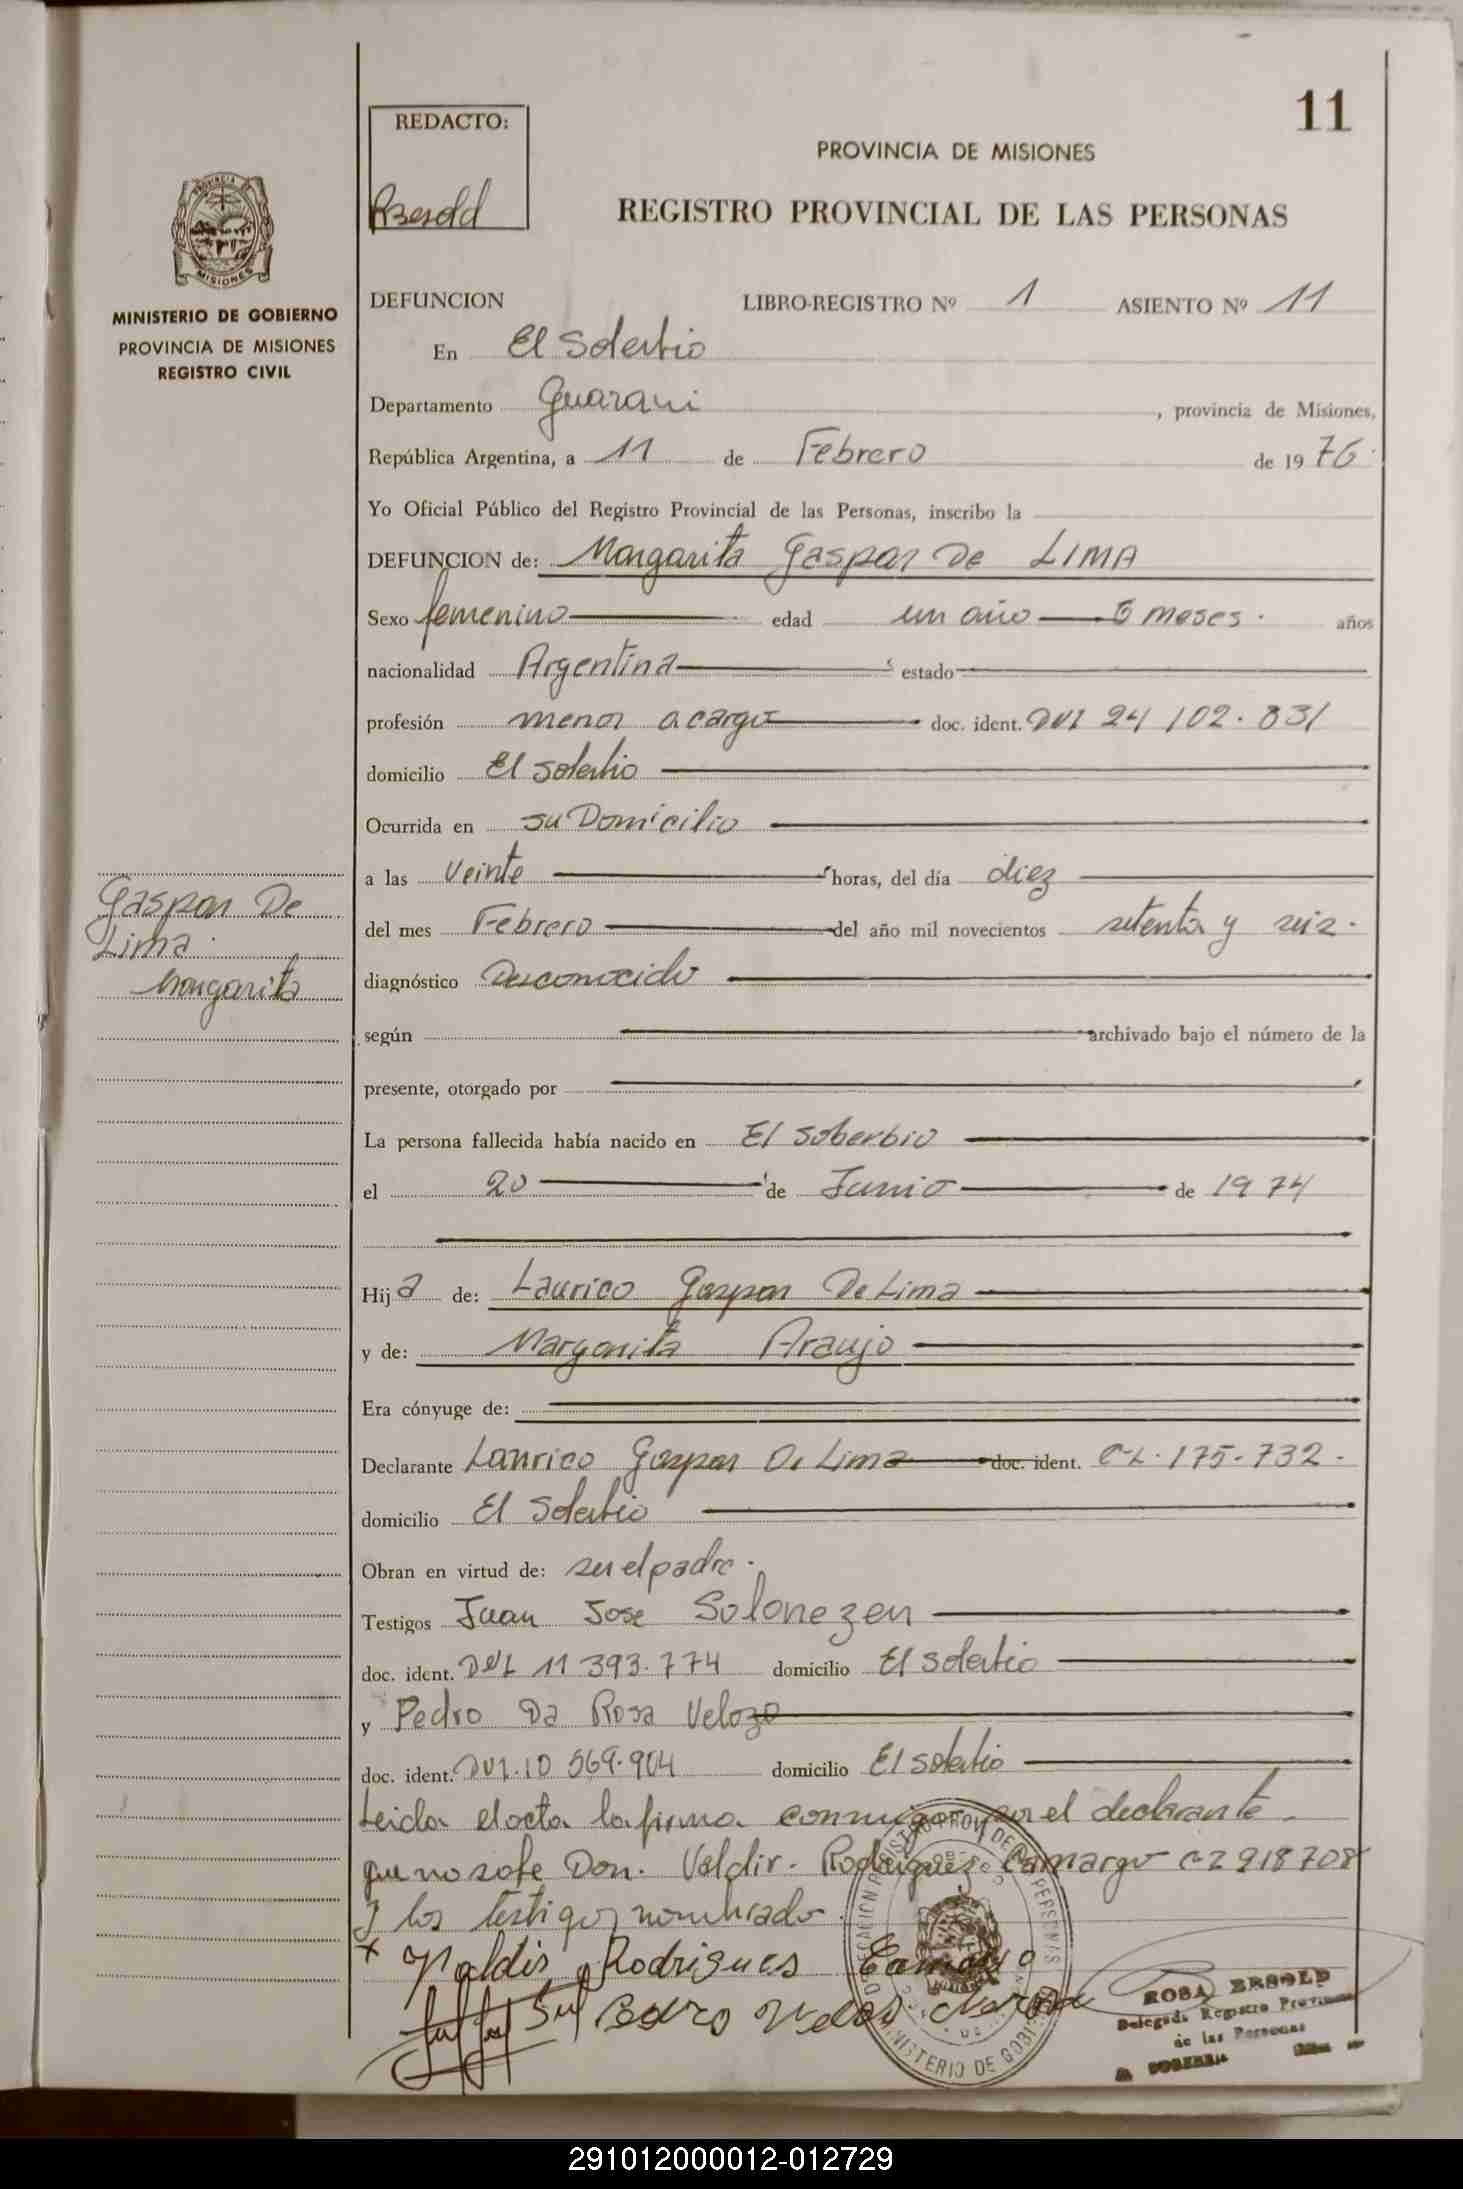 11
REDACTO:
PROVINCIA DE MISIONES
REGISTRO PROVINCIAL DE LAS PERSONAS
PROVINCIA DE
MISIONES
MINISTERIO DE GOBIERNO
PROVINCIA DE MISIONES
REGISTRO CIVIL
DEFUNCION LIBRO-REGISTRO Nº 1 ASIENTO Nº 11
En El Soberbio
Departamento Guarani, provincia de Misiones,
República Argentina, a 11 de Febrero de 1976.
Yo Oficial Público del Registro Provincial de las Personas, inscribo la
DEFUNCION de: Margarita Gaspar De LIMA
Sexo femenino edad un año 6 meses. años
nacionalidad Argentina estado
profesión menor a cargo doc. ident. DUI 24 102.831
domicilio El Soberbio
Ocurrida en su Domicilio
a las Veinte horas, del día diez
Gaspar De
Lima.
Margarita
del mes Febrero del año mil novecientos setenta y seis.
diagnóstico Desconocido
según archivado bajo el número de la
presente, otorgado por
La persona fallecida había nacido en El Soberbio
el 20 de Junio de 1974
Hija de: Laurico Gaspar De Lima
y de: Margarita Araujo
Era cónyuge de:
Declarante Laurico Gaspar De Lima doc. ident. C.I. 175.732.
domicilio El Soberbio
Obran en virtud de: ser el padre.
Testigos Juan Jose Solonezen
doc. ident. DUI 11 393.774 domicilio El Soberbio
y Pedro Da Rosa Velozo
doc. ident. DUI. 10 569.904 domicilio El Soberbio
Leida el acta la firma conmigo por el declarante
que no sabe Don. Valdir. Rodrigues Camargo CI 918708
y los testigos nombrado.
x Valdir Rodrigues Camargo
Pedro
ROSA BESOLD
Delegada Registro Provincial
de las Personas
MINISTERIO DE GOBI
291012000012-012729